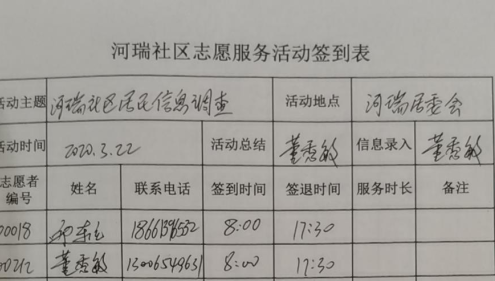 河瑞社区志愿服务活动签到表
活动主题 河瑞社区居民信息调查 活动地点 河瑞居委会
活动时间 2020.3.22 活动总结 董秀敏 信息录入 董秀敏
志愿者编号 姓名 联系电话 签到时间 签退时间 服务时长 备注
00018 8:00 17:30
00212 董秀敏 13006549631 8:00 17:30